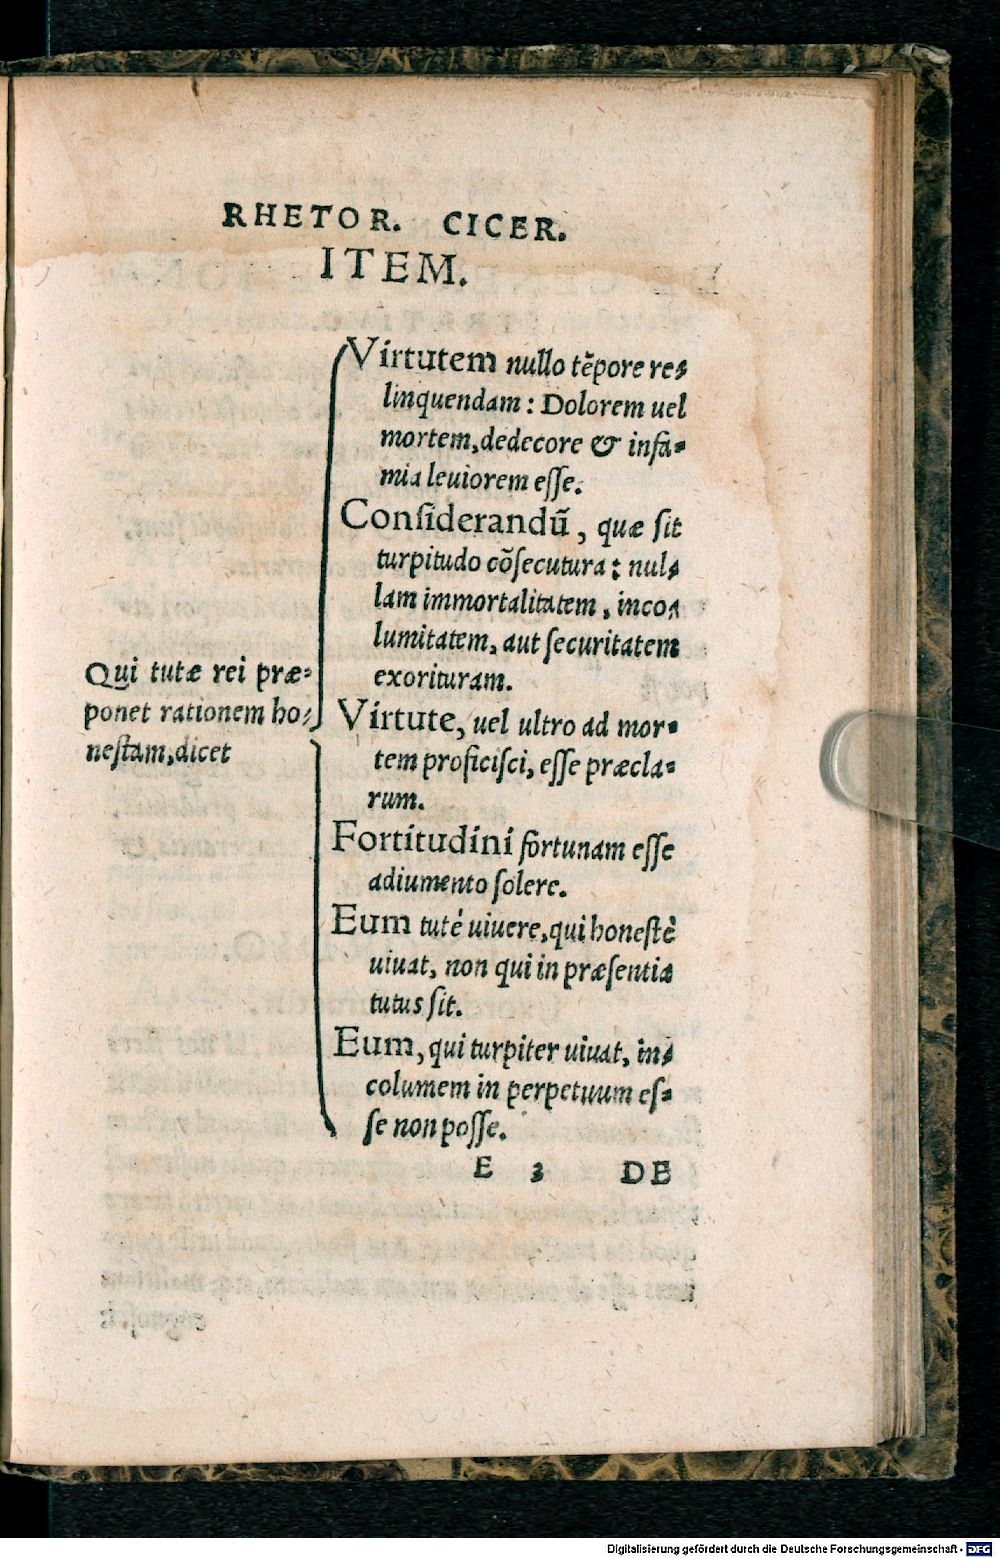 RHETOR. CICER.
ITEM.
Qui tutæ rei præ-
ponet rationem ho-
neſtam, dicet
Virtutem nullo tẽpore re-
linquendam: Dolorem uel
mortem, dedecore & infa-
mia leuiorem eſſe.
Conſiderandũ, quæ ſit
turpitudo cõſecutura: nul-
lam immortalitatem, inco-
lumitatem, aut ſecuritatem
exorituram.
Virtute, uel ultro ad mor-
tem proficiſci, eſſe præcla-
rum.
Fortitudini fortunam eſſe
adiumento ſolere.
Eum tuté uiuere, qui honeſtè
uiuat, non qui in præſentia
tutus ſit.
Eum, qui turpiter uiuat, in-
columem in perpetuum eſ-
ſe non poſſe.
E 3 DE
Digitalisierung gefördert durch die Deutsche Forschungsgemeinschaft - DFG